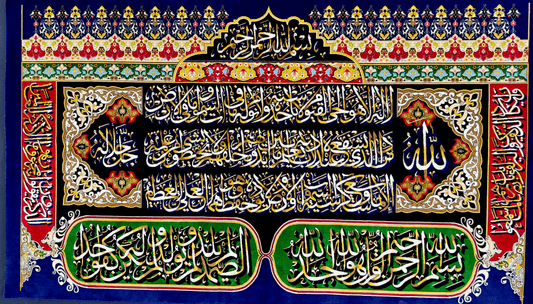 بسم الله الرحمن الرحيم
الله لا إله إلا هو الحي القيوم لا تأخذه سنة ولا نوم له ما في السموات وما في الأرض
الله
من ذا الذي يشفع عنده إلا بإذنه يعلم ما بين أيديهم وما خلفهم ولا يحيطون بشيء من علمه
جل جلاله
إلا بما شاء وسع كرسيه السموات والأرض ولا يؤده حفظهما وهو العلي العظيم
بسم الله الرحمن الرحيم قل هو الله أحد الله
الصمد لم يلد ولم يولد ولم يكن له كفوا أحد